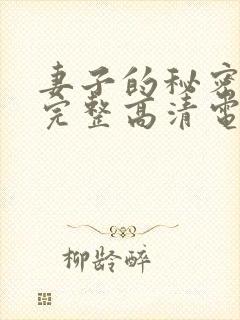 妻子的秘密
完整高清電
柳龄醉